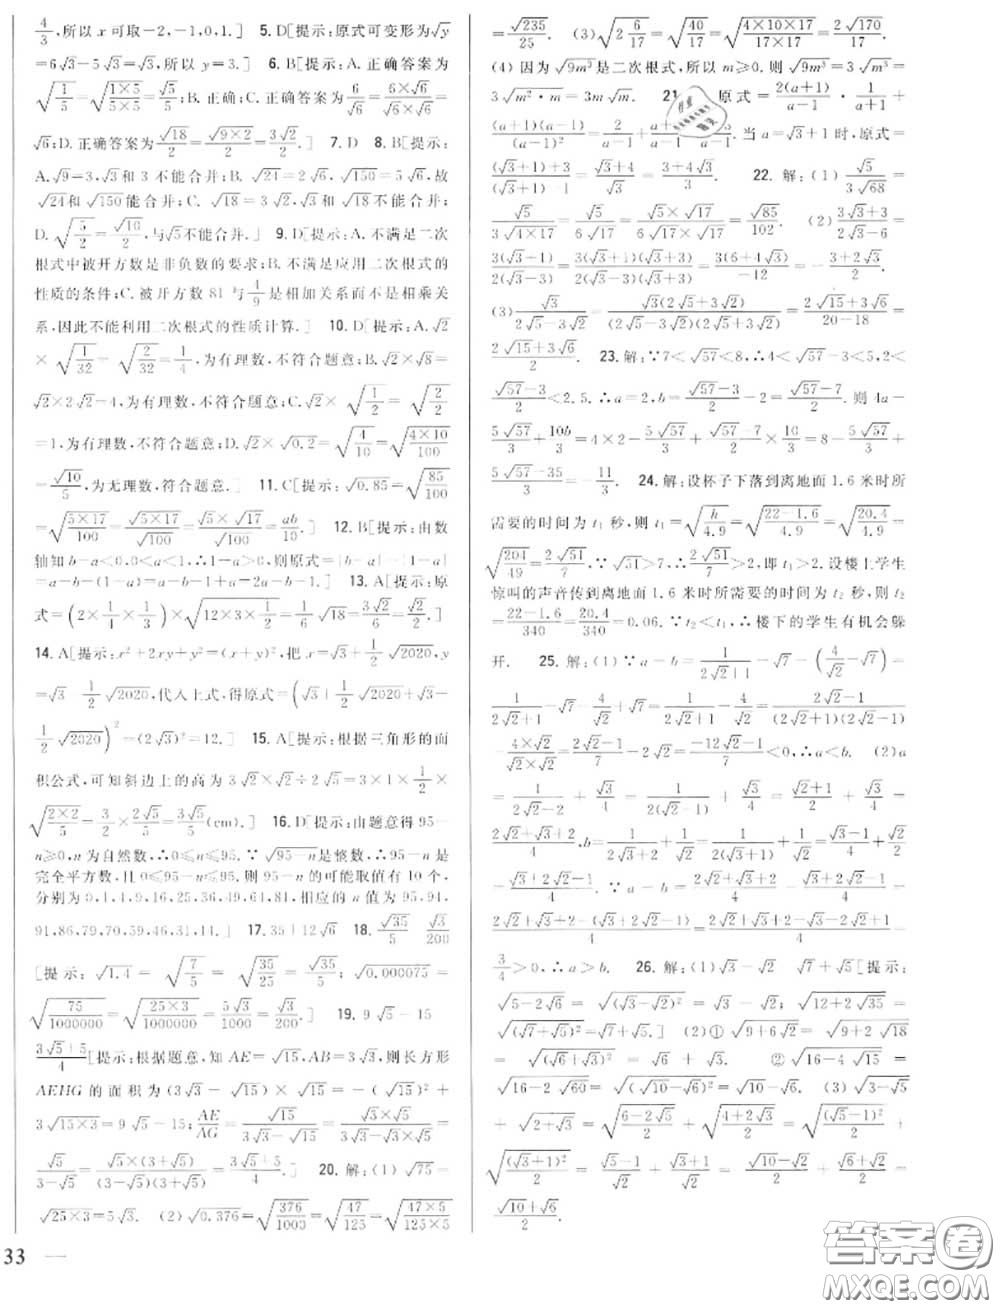 4/3,所以x可取-2,-1,0,1.] 5.D[提示:原式可变形为√y
=6√3-5√3=√3,所以y=3.] 6.B[提示:A.正确答案为
√(1/5)=√((1×5)/(5×5))=√5/5;B.正确;C.正确答案为6/√6=(6×√6)/(√6×√6)=
√6;D.正确答案为√18/2=√(9×2)/2=3√2/2.] 7.D 8.B[提示:
A.√9=3,√3和3不能合并;B.√24=2√6,√150=5√6,故
√24和√150能合并;C.√18=3√2,√3和√18不能合并;
D.√(5/2)=√10/2,与√5不能合并.] 9.D[提示:A.不满足二次
根式中被开方数是非负数的要求;B.不满足应用二次根式的
性质的条件;C.被开方数81与1/9是相加关系而不是相乘关
系,因此不能利用二次根式的性质计算.] 10.D[提示:A.√2
×√(1/32)=√(2/32)=1/4,为有理数,不符合题意;B.√2×√8=
√2×2√2=4,为有理数,不符合题意;C.√2×√(1/2)=√(2/2)
=1,为有理数,不符合题意;D.√2×√0.2=√(4/10)=√((4×10)/100)=
√10/5,为无理数,符合题意.] 11.C[提示:√0.85=√(85/100)
=√((5×17)/100)=√(5×17)/√100=(√5×√17)/100=ab/10.] 12.B[提示:由数
轴知b-a<0,0<a<1,∴1-a>0,则原式=|b-a|-|1-a|=
a-b-(1-a)=a-b-1+a=2a-b-1.] 13.A[提示:原
式=(2×1/4×1/3)×√(12×3×1/2)=1/6√18=3√2/6=√2/2.]
14.A[提示:x²+2xy+y²=(x+y)²,把x=√3+1/2√2020,y
=√3-1/2√2020,代入上式,得原式=(√3+1/2√2020+√3-
1/2√2020)²=(2√3)²=12.] 15.A[提示:根据三角形的面
积公式,可知斜边上的高为3√2×√2÷2√5=3×1×1/2×
√((2×2)/5)=3/2×2√5/5=3√5/5(cm).] 16.D[提示:由题意得95-
n≥0,n为自然数,∴0≤n≤95.∵√(95-n)是整数,∴95-n是
完全平方数,且0≤95-n≤95.则95-n的可能取值有10个,
分别为0,1,4,9,16,25,36,49,64,81,相应的n值为95,94,
91,86,79,70,59,46,31,14.] 17.35+12√6 18.√35/5 √3/200
[提示:√1.4=√(7/5)=√(35/25)=√35/5;√0.000075=
√(75/1000000)=√((25×3)/1000000)=5√3/1000=√3/200.] 19.9√5-15
(3√5+5)/4[提示:根据题意,知AE=√15,AB=3√3,则长方形
AEHG的面积为(3√3-√15)×√15=-(√15)²+
3√(15×3)=9√5-15;AE/AG=√15/(3√3-√15)=(√3×√5)/(3√3-√3×√5)=
√5/(3-√5)=(√5×(3+√5))/((3-√5)(3+√5))=(3√5+5)/4.] 20.解:(1)√75=
√(25×3)=5√3. (2)√0.376=√(376/1000)=√(47/125)=√((47×5)/(125×5))
=√235/25. (3)√(2 6/17)=√(40/17)=√((4×10×17)/(17×17))=2√170/17.
(4)因为√(9m³)是二次根式,所以m≥0.则√(9m³)=3√(m³)=
3√(m²·m)=3m√m. 21. 原式=2(a+1)/(a-1)·1/(a+1)+
(a+1)(a-1)/(a-1)²=2/(a-1)+(a+1)/(a-1)=(a+3)/(a-1).当a=√3+1时,原式=
((√3+1)+3)/((√3+1)-1)=(√3+4)/√3=(3+4√3)/3. 22.解:(1)√5/(3√68)=
√5/(3√(4×17))=√5/(6√17)=(√5×√17)/(6√17×√17)=√85/102. (2)(3√3+3)/(2√3-6)=
3(√3+1)/(2(√3-3))=3(√3+1)(√3+3)/(2(√3-3)(√3+3))=3(6+4√3)/(-12)=-(3+2√3)/2.
(3)√3/(2√5-3√2)=√3(2√5+3√2)/((2√5-3√2)(2√5+3√2))=(2√15+3√6)/(20-18)=
(2√15+3√6)/2. 23.解:∵7<√57<8,∴4<√57-3<5,2<
(√57-3)/2<2.5.∴a=2,b=(√57-3)/2-2=(√57-7)/2.则4a-
5√57/3+10b/3=4×2-5√57/3+(√57-7)/2×10/3=8-5√57/3+
(5√57-35)/3=-11/3. 24.解:设杯子下落到离地面1.6米时所
需要的时间为t₁秒,则t₁=√(h/4.9)=√((22-1.6)/4.9)=√(20.4/4.9)=
√(204/49)=2√51/7.∵√51>7,∴2√51/7>2,即t₁>2.设楼上学生
惊叫的声音传到离地面1.6米时所需要的时间为t₂秒,则t₂
=(22-1.6)/340=20.4/340=0.06.∵t₂<t₁,∴楼下的学生有机会躲
开. 25.解:(1)∵a-b=1/(2√2+1)-√7-(4/√2-√7)=
1/(2√2+1)-√7-4/√2+√7=1/(2√2+1)-4/√2=(2√2-1)/((2√2+1)(2√2-1))
-(4×√2)/(√2×√2)=(2√2-1)/7-2√2=(-12√2-1)/7<0,∴a<b. (2)a
=1/(2√2-2)+√3/4=1/(2(√2-1))+√3/4=(√2+1)/2+√3/4=
(2√2+√3+2)/4,b=1/(2√3+2)+1/√2=1/(2(√3+1))+1/√2=(√3-1)/4+
√2/2=(√3+2√2-1)/4.∵a-b=(2√2+√3+2)/4-(√3+2√2-1)/4=
(2√2+√3+2-(√3+2√2-1))/4=(2√2+√3+2-√3-2√2+1)/4=
3/4>0,∴a>b. 26.解:(1)√3-√2 √7+√5[提示:
√(5-2√6)=√((√3-√2)²)=√3-√2;√(12+2√35)=
√((√7+√5)²)=√7+√5.] (2)①√(9+6√2)=√(9+2√18)
=√((√6+√3)²)=√6+√3. ②√(16-4√15)=
√(16-2√60)=√((√10-√6)²)=√10-√6. (3)√(3-√5)
+√(2+√3)=√((6-2√5)/2)+√((4+2√3)/2)=√((√5-1)²/2)+
√((√3+1)²/2)=(√5-1)/√2+(√3+1)/√2=(√10-√2)/2+(√6+√2)/2=
(√10+√6)/2.
33
答案圈
MXQE.COM